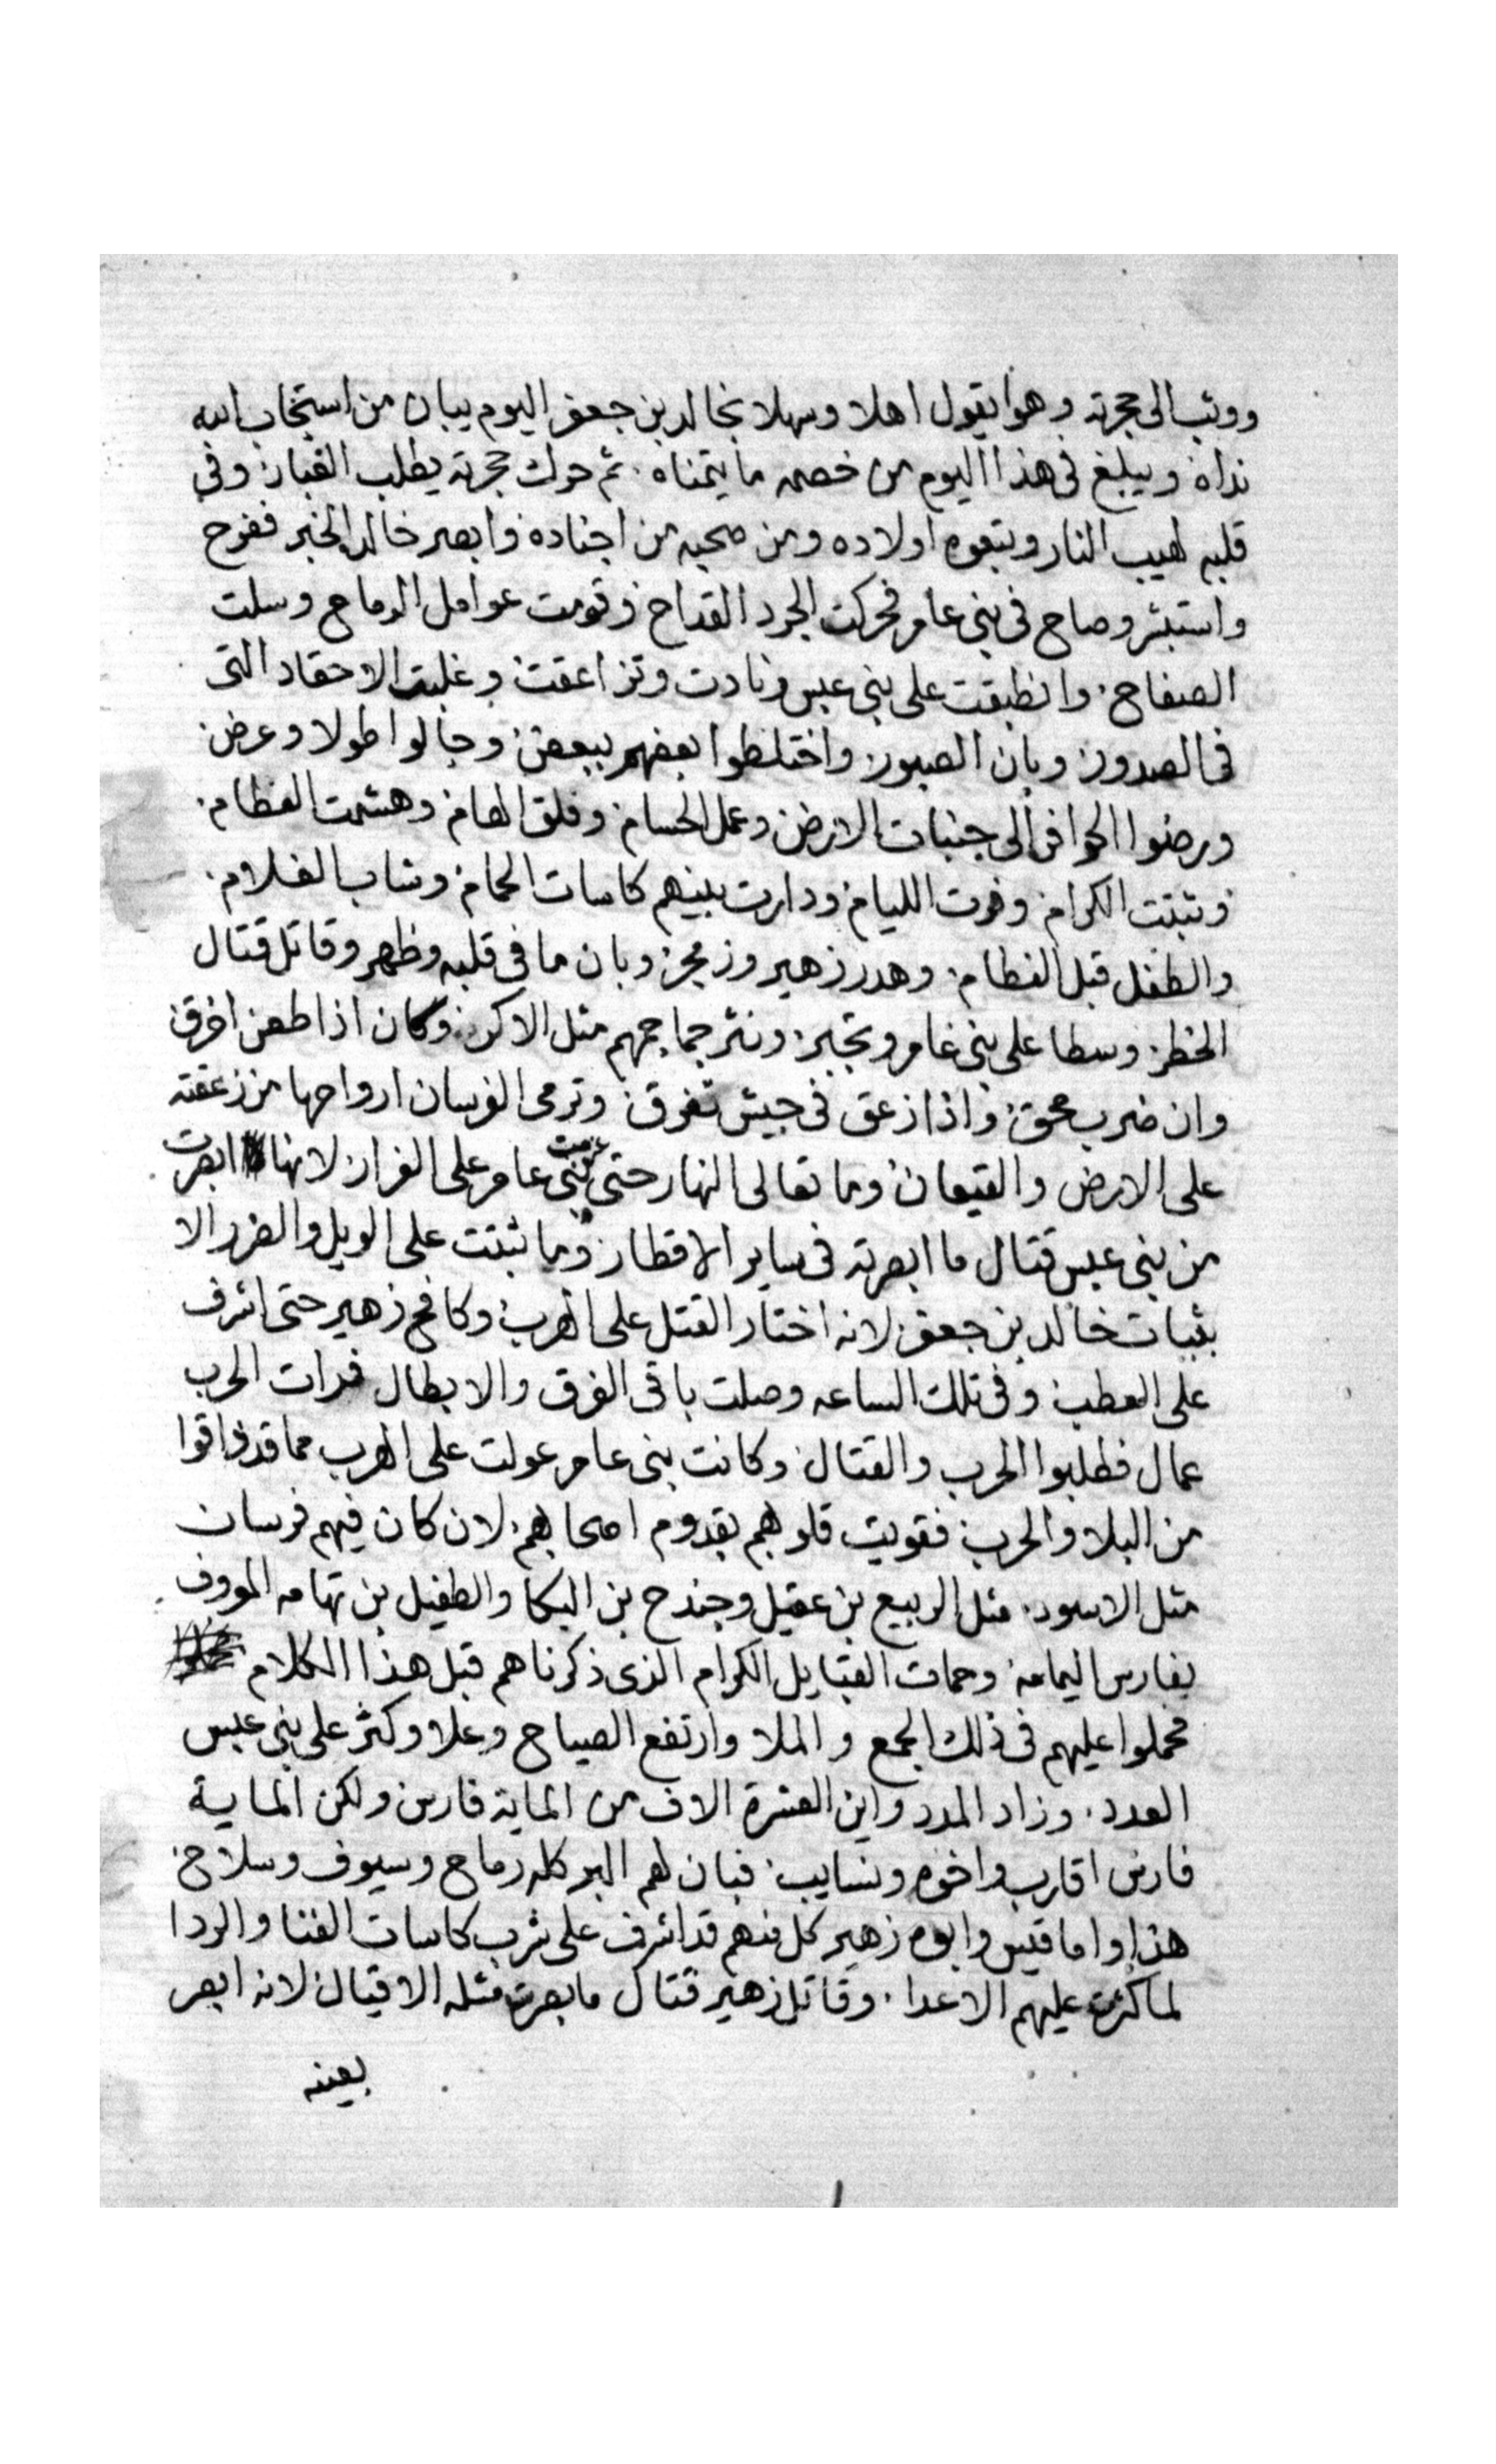 ووثب الى حجرته وهوا يقول اهلا وسهلا بخالد بن جعفر اليوم يبان من استجاب الله
نداه ويبلغ فى هذا اليوم من خصمه ما يتمناه . ثم حرك حجرته يطلب الغبار وفى
قلبه لهيب النار وتبعوه اولاده ومن صحبه من اجناده وابصر خالد الخبر ففرح
واستبشر وصاح فى بنى عامر فحركت الجرد القداح وقومت عوامل الرماح وسلت
الصفاح . وانطبقت على بنى عبس ونادت وتزاعقت وغلبت الاحقاد التى
فى الصدور وبان الصبور واختلطوا بعضهم ببعض وجالوا طولا وعرض
ورضوا الحوافر الى جنبات الارض وعمل الحسام وفلق الهام وهشمت العظام .
وثبتت الكرام وفرت الليام ودارت بينهم كاسات الحمام وشاب الغلام .
والطفل قبل الفطام . وهدر زهير وزمجر وبان ما فى قلبه وظهر وقاتل قتال
الخطر وسطا على بنى عامر وتجبر ونثر جماجمهم مثل الاكر وكان اذا طعن اخرق
وان ضرب محق واذا زعق فى جيش تفرق وترمى الفرسان ارواحها من زعقته
على الارض والقيعان وما تعالى النهار حتى عزمت بنى عامر على الفرار لانها ابصرت
من بنى عبس قتال ما ابصرته فى ساير الاقطار وما ثبتت على الويل والضرر الا
بثبات خالد بن جعفر لانه اختار القتل على الهرب وكافح زهير حتى اشرف
على العطب وفى تلك الساعه وصلت باقى الفرق والابطال فرات الحرب
عمال فطلبوا الحرب والقتال وكانت بنى عامر عولت على الهرب مما قد ذاقوا
من البلا والحرب فقويت قلوبهم بقدوم اصحابهم لان كان فيهم فرسان
مثل الاسود . مثل الربيع بن عقيل وجندح بن البكا والطفيل بن تهامه المعروف
بفارس اليمامه وحمات القبايل الكرام الذى ذكرناهم قبل هذا الكلام
فحملوا عليهم فى ذلك الجمع والملا وارتفع الصياح وعلا وكثر على بنى عبس
العدد . وزاد المدد واين العشرة الاف من الماية فارس ولكن الماية
فارس اقارب واخوه ونسايب فبان لهم البر كله رماح وسيوف وسلاح
هذا واما قيس وابوه زهير كل منهم قد اشرف على شرب كاسات الفنا والردا
لما كثرت عليهم الاعدا . وقاتل زهير قتال ما بصرت مثله الاقيال لانه ابصر
بعينه